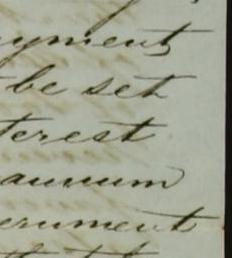 yment
be set
terest
annum
ernment